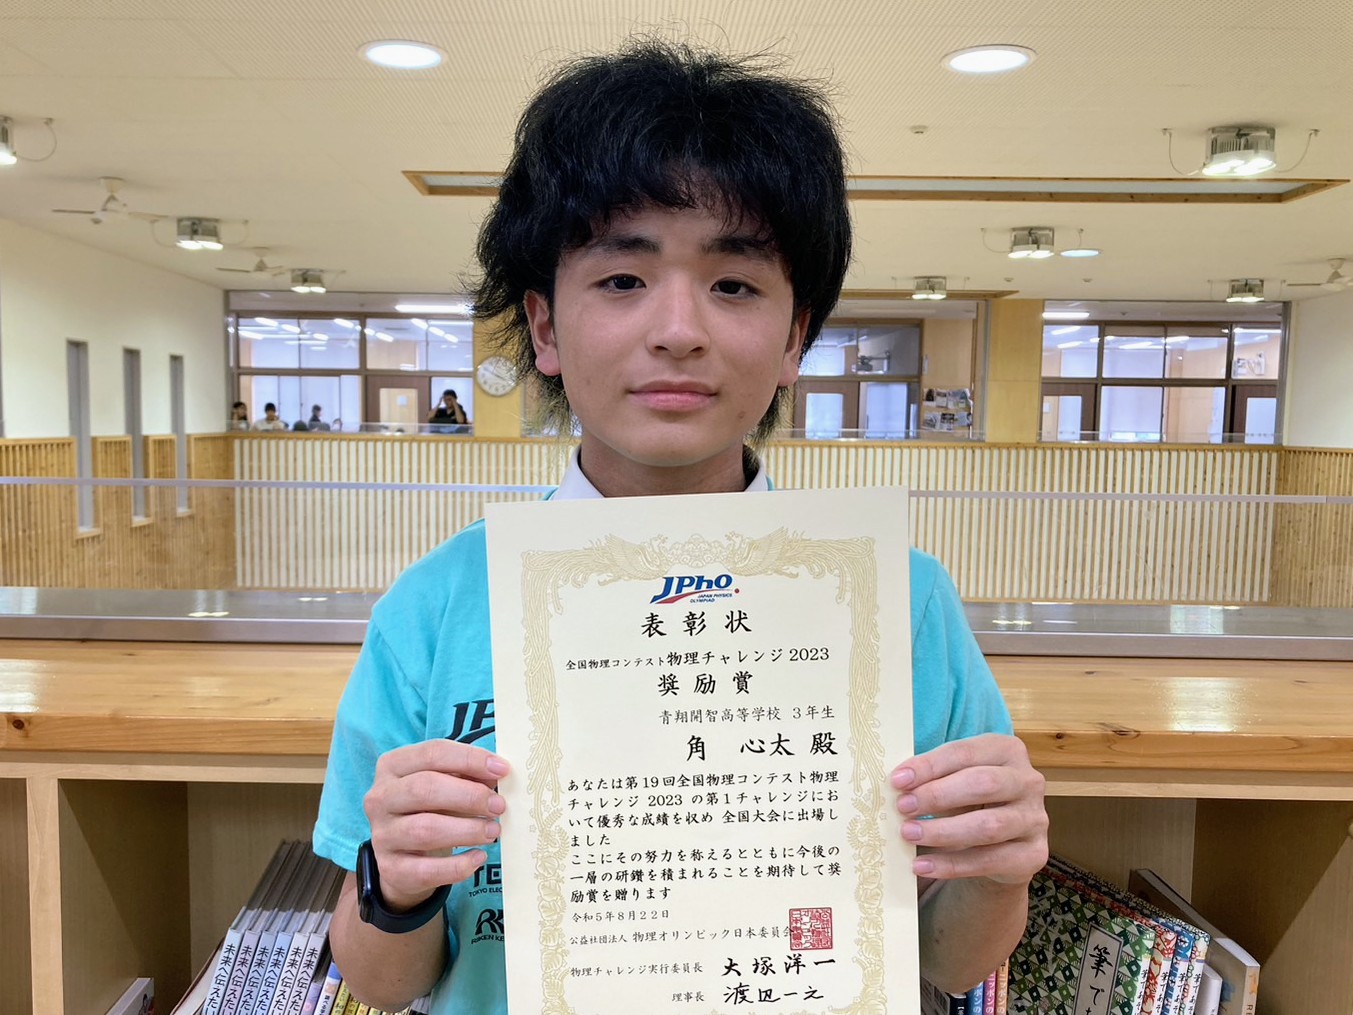 JPhO
JAPAN PHYSICS
OLYMPIAD
表彰状
全国物理コンテスト物理チャレンジ2023
奨励賞
青翔開智高等学校 3年生
角 心太 殿
あなたは第19回全国物理コンテスト物理
チャレンジ 2023 の第1チャレンジにお
いて優秀な成績を収め 全国大会に出場し
ました
ここにその努力を称えるとともに今後の
一層の研鑽を積まれることを期待して奨
励賞を贈ります
令和5年8月22日
公益社団法人 物理オリンピック日本委員会
物理チャレンジ実行委員長 大塚洋一
理事長 渡辺一之
JP
TE
TOKYO ELEC
RIKEN KE
未来へ伝えた
未来へ伝えた
未来へ伝えた
未来へ伝えた
未来へ伝えた
筆で